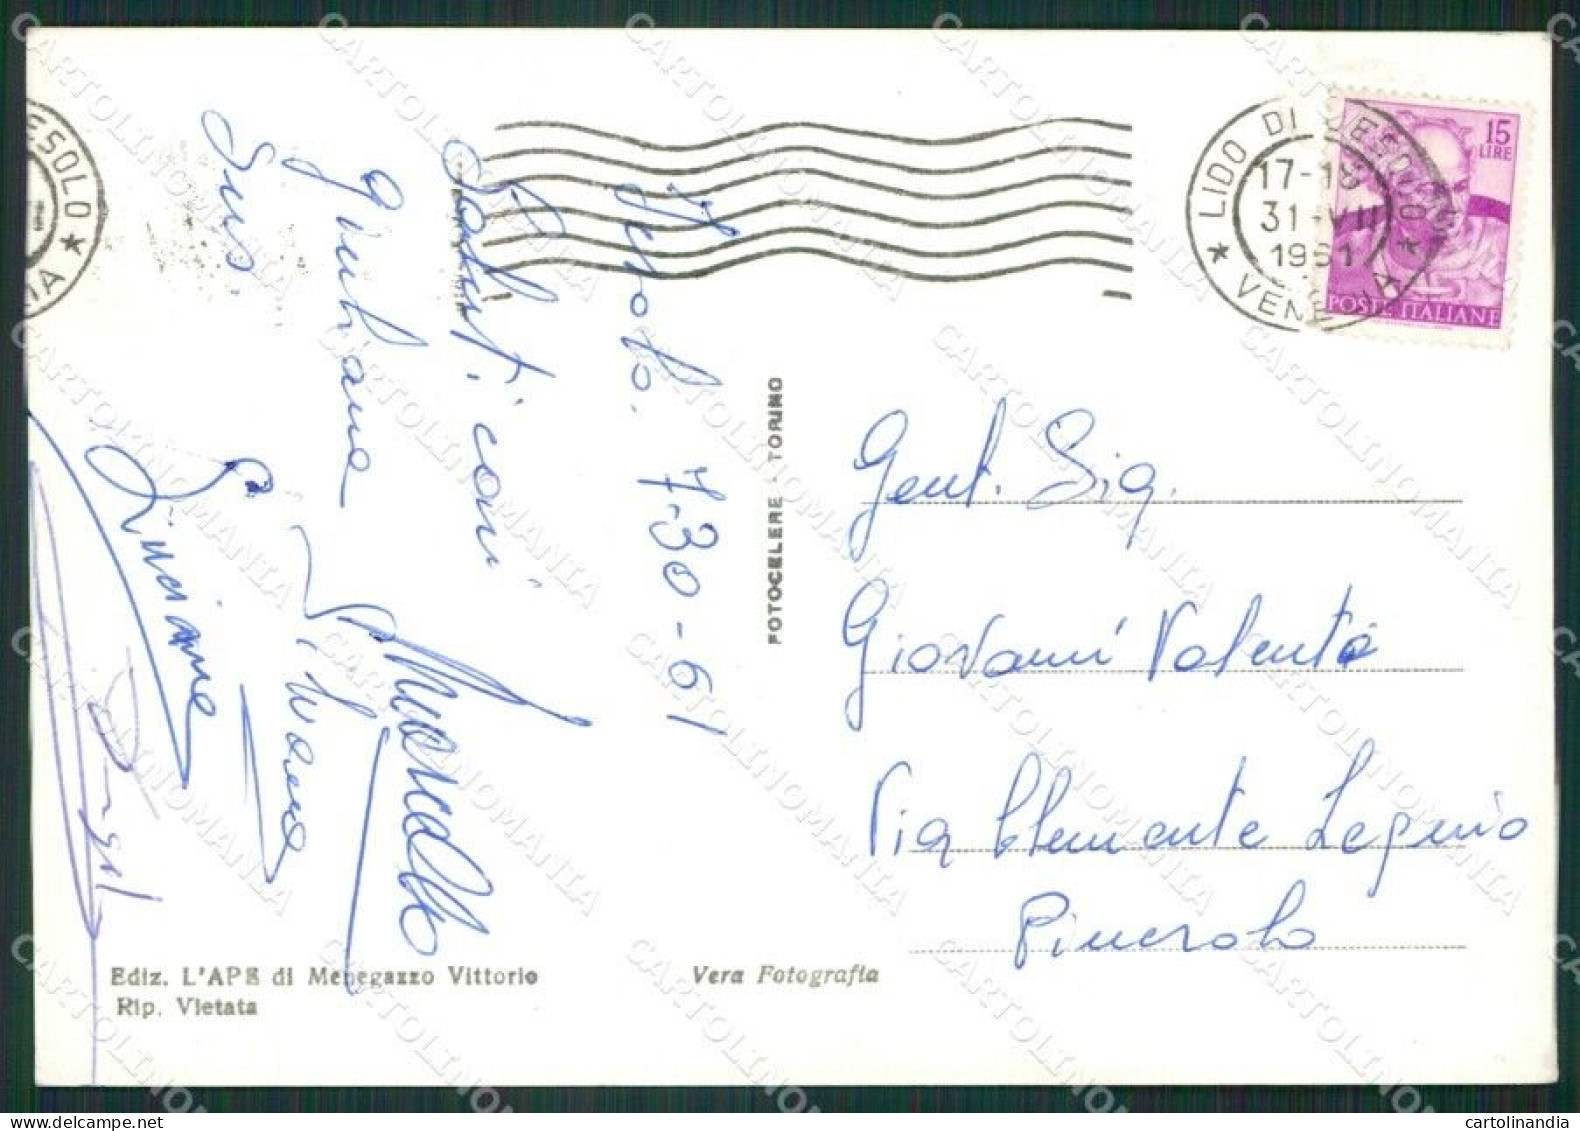 Jesolo. 7.30-61
Saluti cari
Giuliana
Silvana
Luciana
LIDO DI JESOLO
17-18
31-VII
1961
★ VENEZIA ★
15
LIRE
POSTE ITALIANE
ESOLO ★
IA
FOTOCELERE - TORINO
Gent. Sig.
Giovanni Valente
Via Clemente
Pinerolo
Ediz. L'APE di Menegazzo Vittorio
Rip. Vietata
Vera Fotografia
CARTOLINOMANIA
cartolinandia